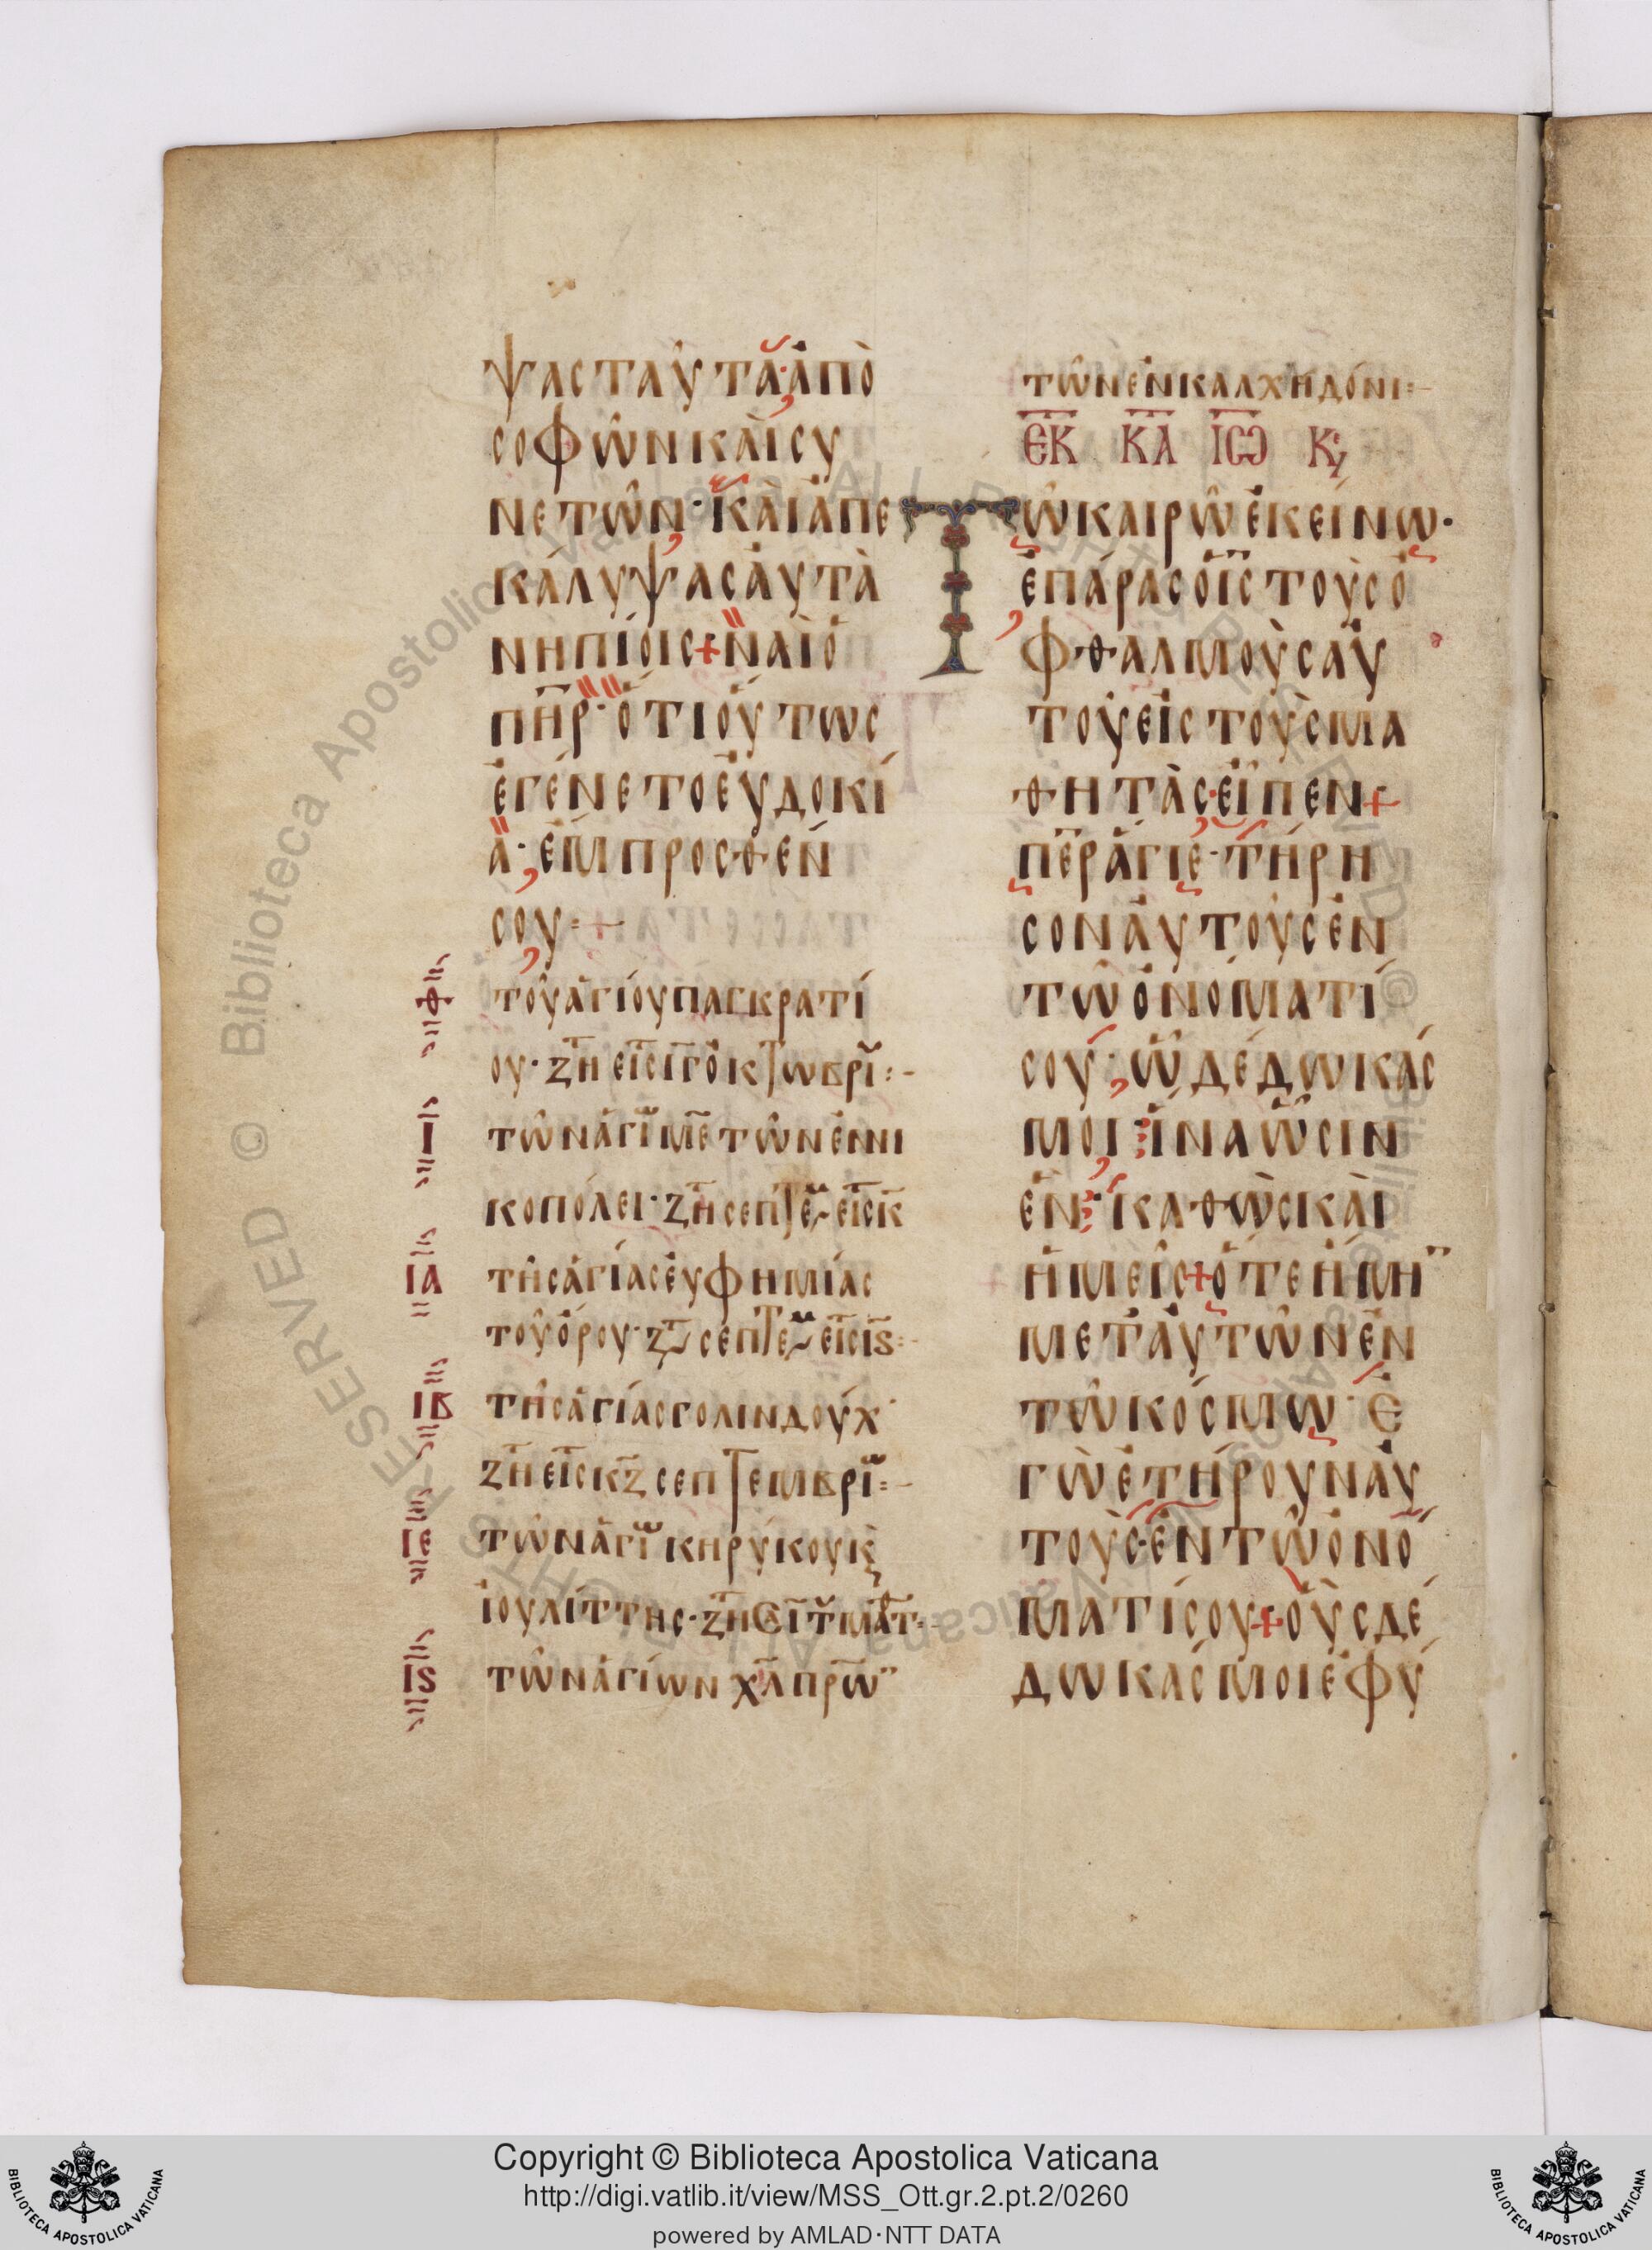 ψας ταῦτα· ἀπὸ
σοφῶν καὶ συ
νετῶν· καὶ ἀπε
κάλυψας αὐτὰ
νηπίοις + ναὶ ὁ
πηρ· ὅτι οὕτως
ἐγένετο εὐδοκί
α· ἔμπροσθέν
σου :+
Θ τοῦ ἁγίου παγκρατί
ου· ζη εισ ιγ οκτωβρι :-
Ι τῶν ἁγι με τῶν ἐν νι
κοπόλει· ζη σεπτε εισ κ
ΙΑ τῆς ἁγίας εὐφημίας
τοῦ ὅρου· ζη σεπτε εισ ις :-
ΙΒ τῆς ἁγίας γολινδούχ·
ζη εισ κζ σεπτεμβρι :-
ΙΕ τῶν ἁγι κηρύκου κς
ἰουλίττης· ζη ει τ ματ :-
Ις τῶν ἁγίων χλ πρω
τῶν ἐν καλχηδόνι :-
ΕΚ ΚΑ ΙΩ Κς
Τῶ καιρῶ ἐκείνω·
ἐπάρας ὁ ις τοὺς ὀ
φθαλμοὺς αὐ
τοῦ εἰς τοὺς μα
θητὰς· εἶπεν +
περ ἅγιε· τήρη
σον αὐτοὺς ἐν
τῶ ὀνόματί
σου· ὧ δέδωκάς
μοι· ἵνα ὦσιν
ἓν· καθὼς καὶ
ἡμεῖς + ὅτε ἤμη
μετ' αὐτῶν ἐν
τῶ κόσμω· ἐ
γὼ ἐτήρουν αὐ
τοὺς· ἐν τῶ ὀνό
ματί σου + οὓς δέ
δωκάς μοι ἐφύ
Copyright © Biblioteca Apostolica Vaticana
http://digi.vatlib.it/view/MSS_Ott.gr.2.pt.2/0260
powered by AMLAD·NTT DATA
BIBLIOTECA APOSTOLICA VATICANA
BIBLIOTECA APOSTOLICA VATICANA